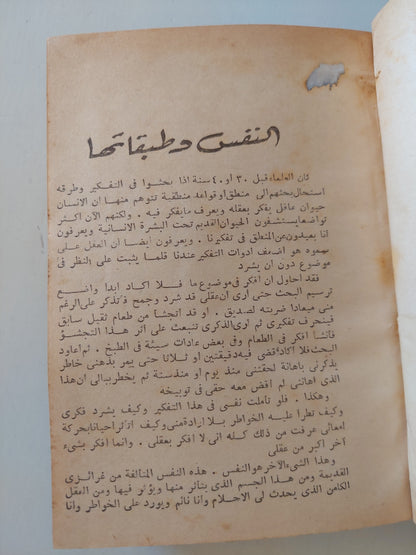 النفس وطبقاتها
كان العلماء قبل ٣٠ او ٤٠ سنة اذا بحثوا في التفكير وطرقه
استحال بحثهم الى منطق او قواعد منطقية تتوهم منها ان الانسان
حيوان عاقل يفكر بعقله ويعرف ما يفكر فيه . ولكنهم الآن اكثر
تواضعا يستشفون الحيوان القديم تحت البشرة الانسانية ويعرفون
انا بعيدون عن المنطق في تفكيرنا . ويعرفون ايضا ان العقل على
سموه هو اضعف ادوات التفكير عندنا قلما يثبت على النظر في
موضوع دون ان يشرد
فقد احاول ان افكر في موضوع ما فلا اكاد ابدا واضع
ترسيم البحث حتى أرى ان عقلى قد شرد وجمح فاتذكر على الرغم
منى ميعادا ضربته لصديق . او قد اتجشأ من طعام ثقيل سابق
فينحرف تفكيرى ثم ارى الذكرى تنبعث على اثر هذا التجشؤ
فأنشأ افكر في الطعام وفي بعض عادات سيئة في الطبخ . ثم اعاود
البحث فلا أكاد أقضى فيه دقيقتين او ثلاثا حتى يمر بذهنى خاطر
يذكرنى باهانة لحقتنى منذ يوم او منذ سنة ثم يخطر ببالى ان هذا
الذى اهاننى لم اقض معه حقى في توبيخه
وهكذا . فلو تأملت نفسى في هذا التفكير وكيف يشرد فكرى
وكيف تطرأ عليه الخواطر بلا ارادة منى وكيف اتأثر احيانا بحركة
امعائى عرفت من ذلك كله انى لا افكر بعقلى . وانما افكر بشىء
آخر أكبر من عقلى
وهذا الشىء الآخر هو النفس . هذه النفس المتألفة من غرائزى
القديمة ومن هذا الجسم الذى يتأثر منها ويؤثر فيها ومن العقل
الكامن الذى يحدث لى الاحلام وانا نائم ويورد على الخواطر وانا